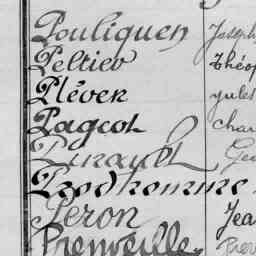 Pouliquen Joseph
Peltier Théop
Pléven yules
Pageot Cha
Pinault Geo
Prodhomme
Peron Jea
Prenveille Prev